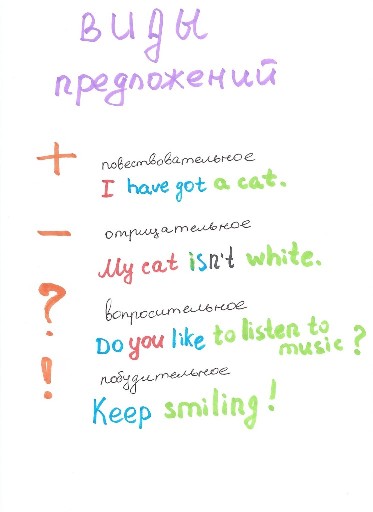 виды
предложений
+ повествовательное
I have got a cat.
– отрицательное
My cat isn't white.
? вопросительное
Do you like to listen to
music?
! побудительное
Keep smiling!